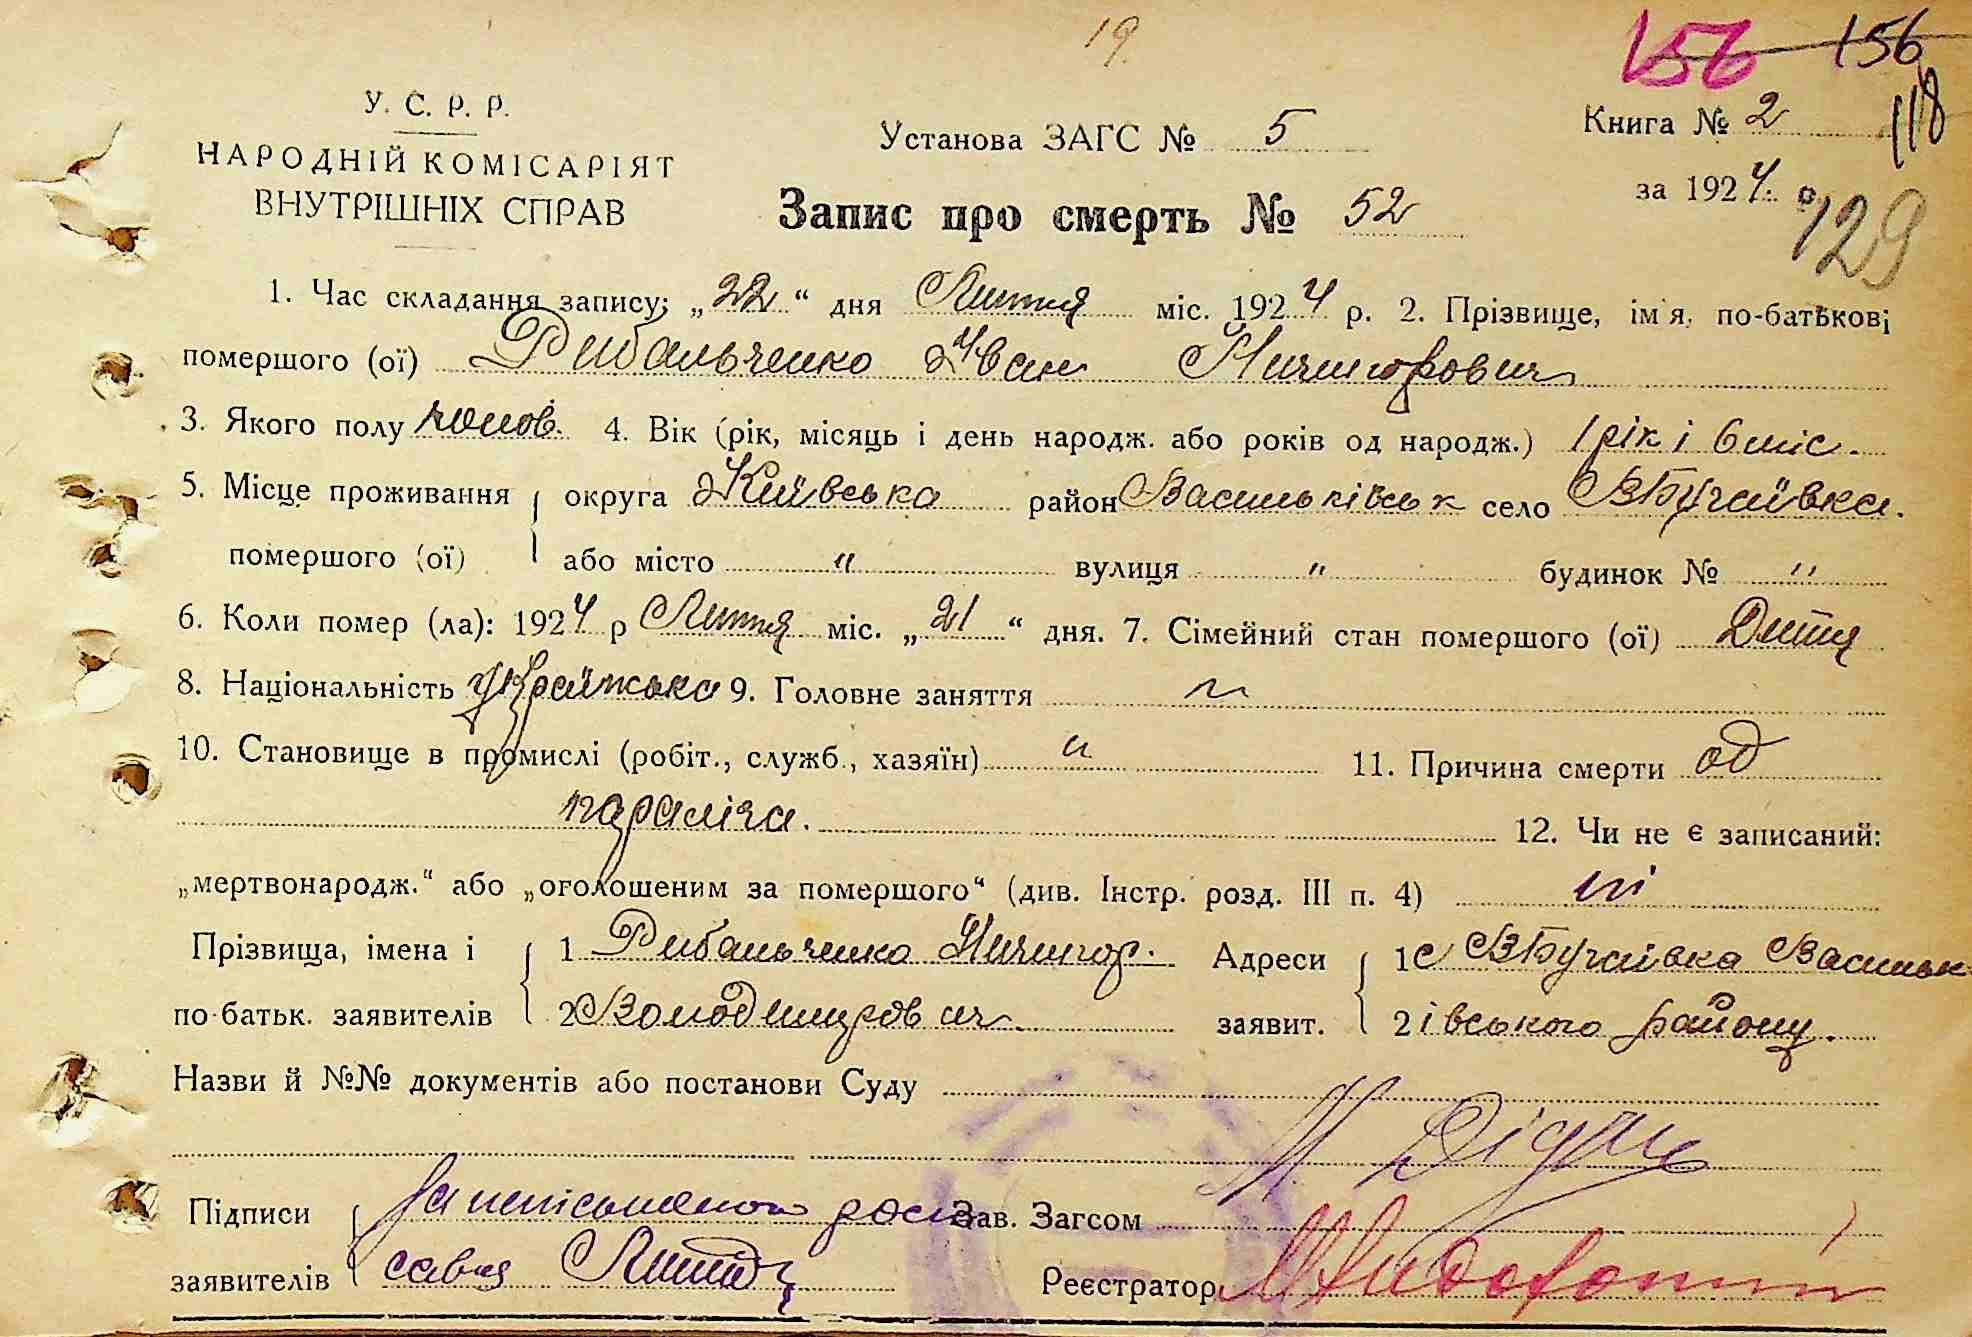 19.
156 156
118
У. С. Р. Р.
НАРОДНІЙ КОМІСАРІЯТ
ВНУТРІШНІХ СПРАВ
Установа ЗАГС № 5
Книга № 2
за 1924 р.
129
Запис про смерть № 52
1. Час складання запису: „22“ дня Липня міс. 1924 р. 2. Прізвище, ім'я, по-батькові
помершого (ої) Рибальченко Іван Ничипорович
3. Якого полу чолов. 4. Вік (рік, місяць і день народж. або років од народж.) 1 рік і 6 міс.
5. Місце проживання округа Київська район Васильківськ село ВБугаївка.
помершого (ої) або місто " вулиця " будинок № "
6. Коли помер (ла): 1924 р Липня міс. „21“ дня. 7. Сімейний стан помершого (ої) Дитя
8. Національність Українська 9. Головне заняття "
10. Становище в промислі (робіт., служб., хазяїн) " 11. Причина смерти од
параліча. 12. Чи не є записаний:
„мертвонародж.“ або „оголошеним за помершого“ (див. Інстр. розд. III п. 4) ні
Прізвища, імена і 1 Рибальченко Ничипор. Адреси 1 с ВБугаївка Васильк
по-батьк. заявителів 2 Володимирович заявит. 2 івського району.
Назви й №№ документів або постанови Суду
Підписи За неписьменого роспи Зав. Загсом
заявителів савця Реєстратор